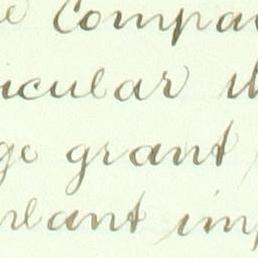 e Compa
icular th
ge grant
rleant imp